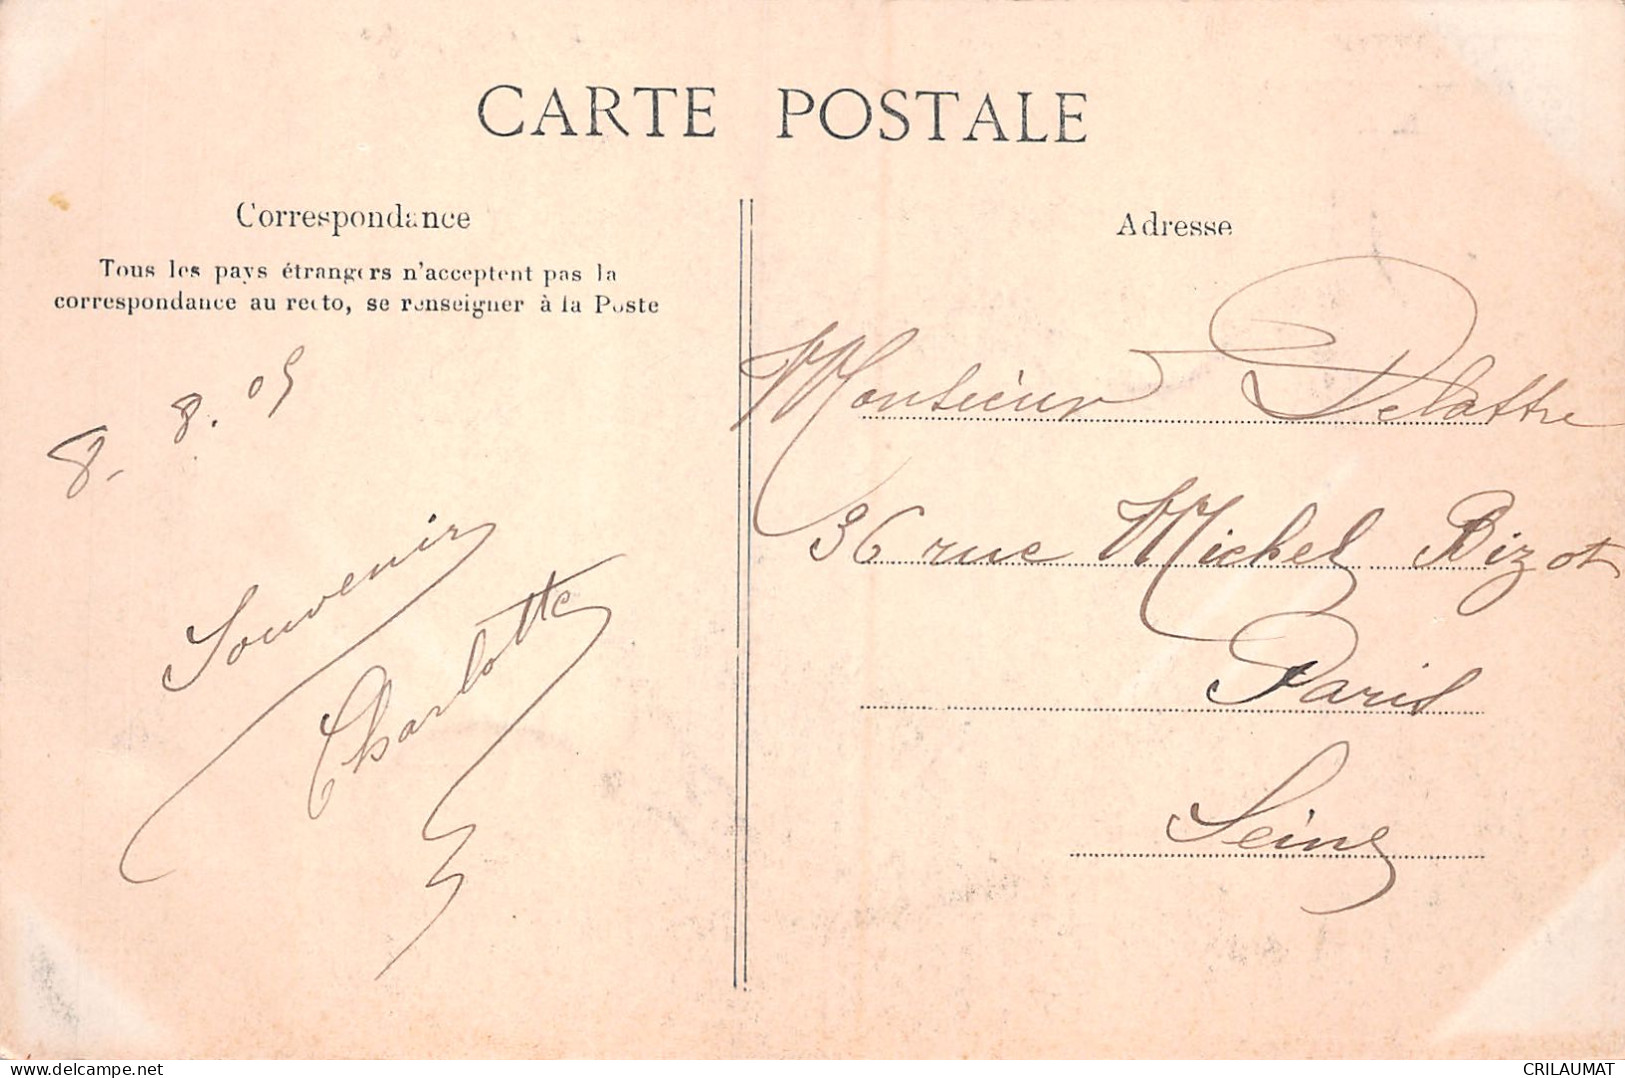 CARTE POSTALE
Correspondance
Tous les pays étrangers n'acceptent pas la
correspondance au recto, se renseigner à la Poste
8. 8. 05
Souvenir
Charlotte
Adresse
Monsieur Delattre
36 rue Michel Bizot
Paris
Seine
delcampe.net
CRILAUMAT